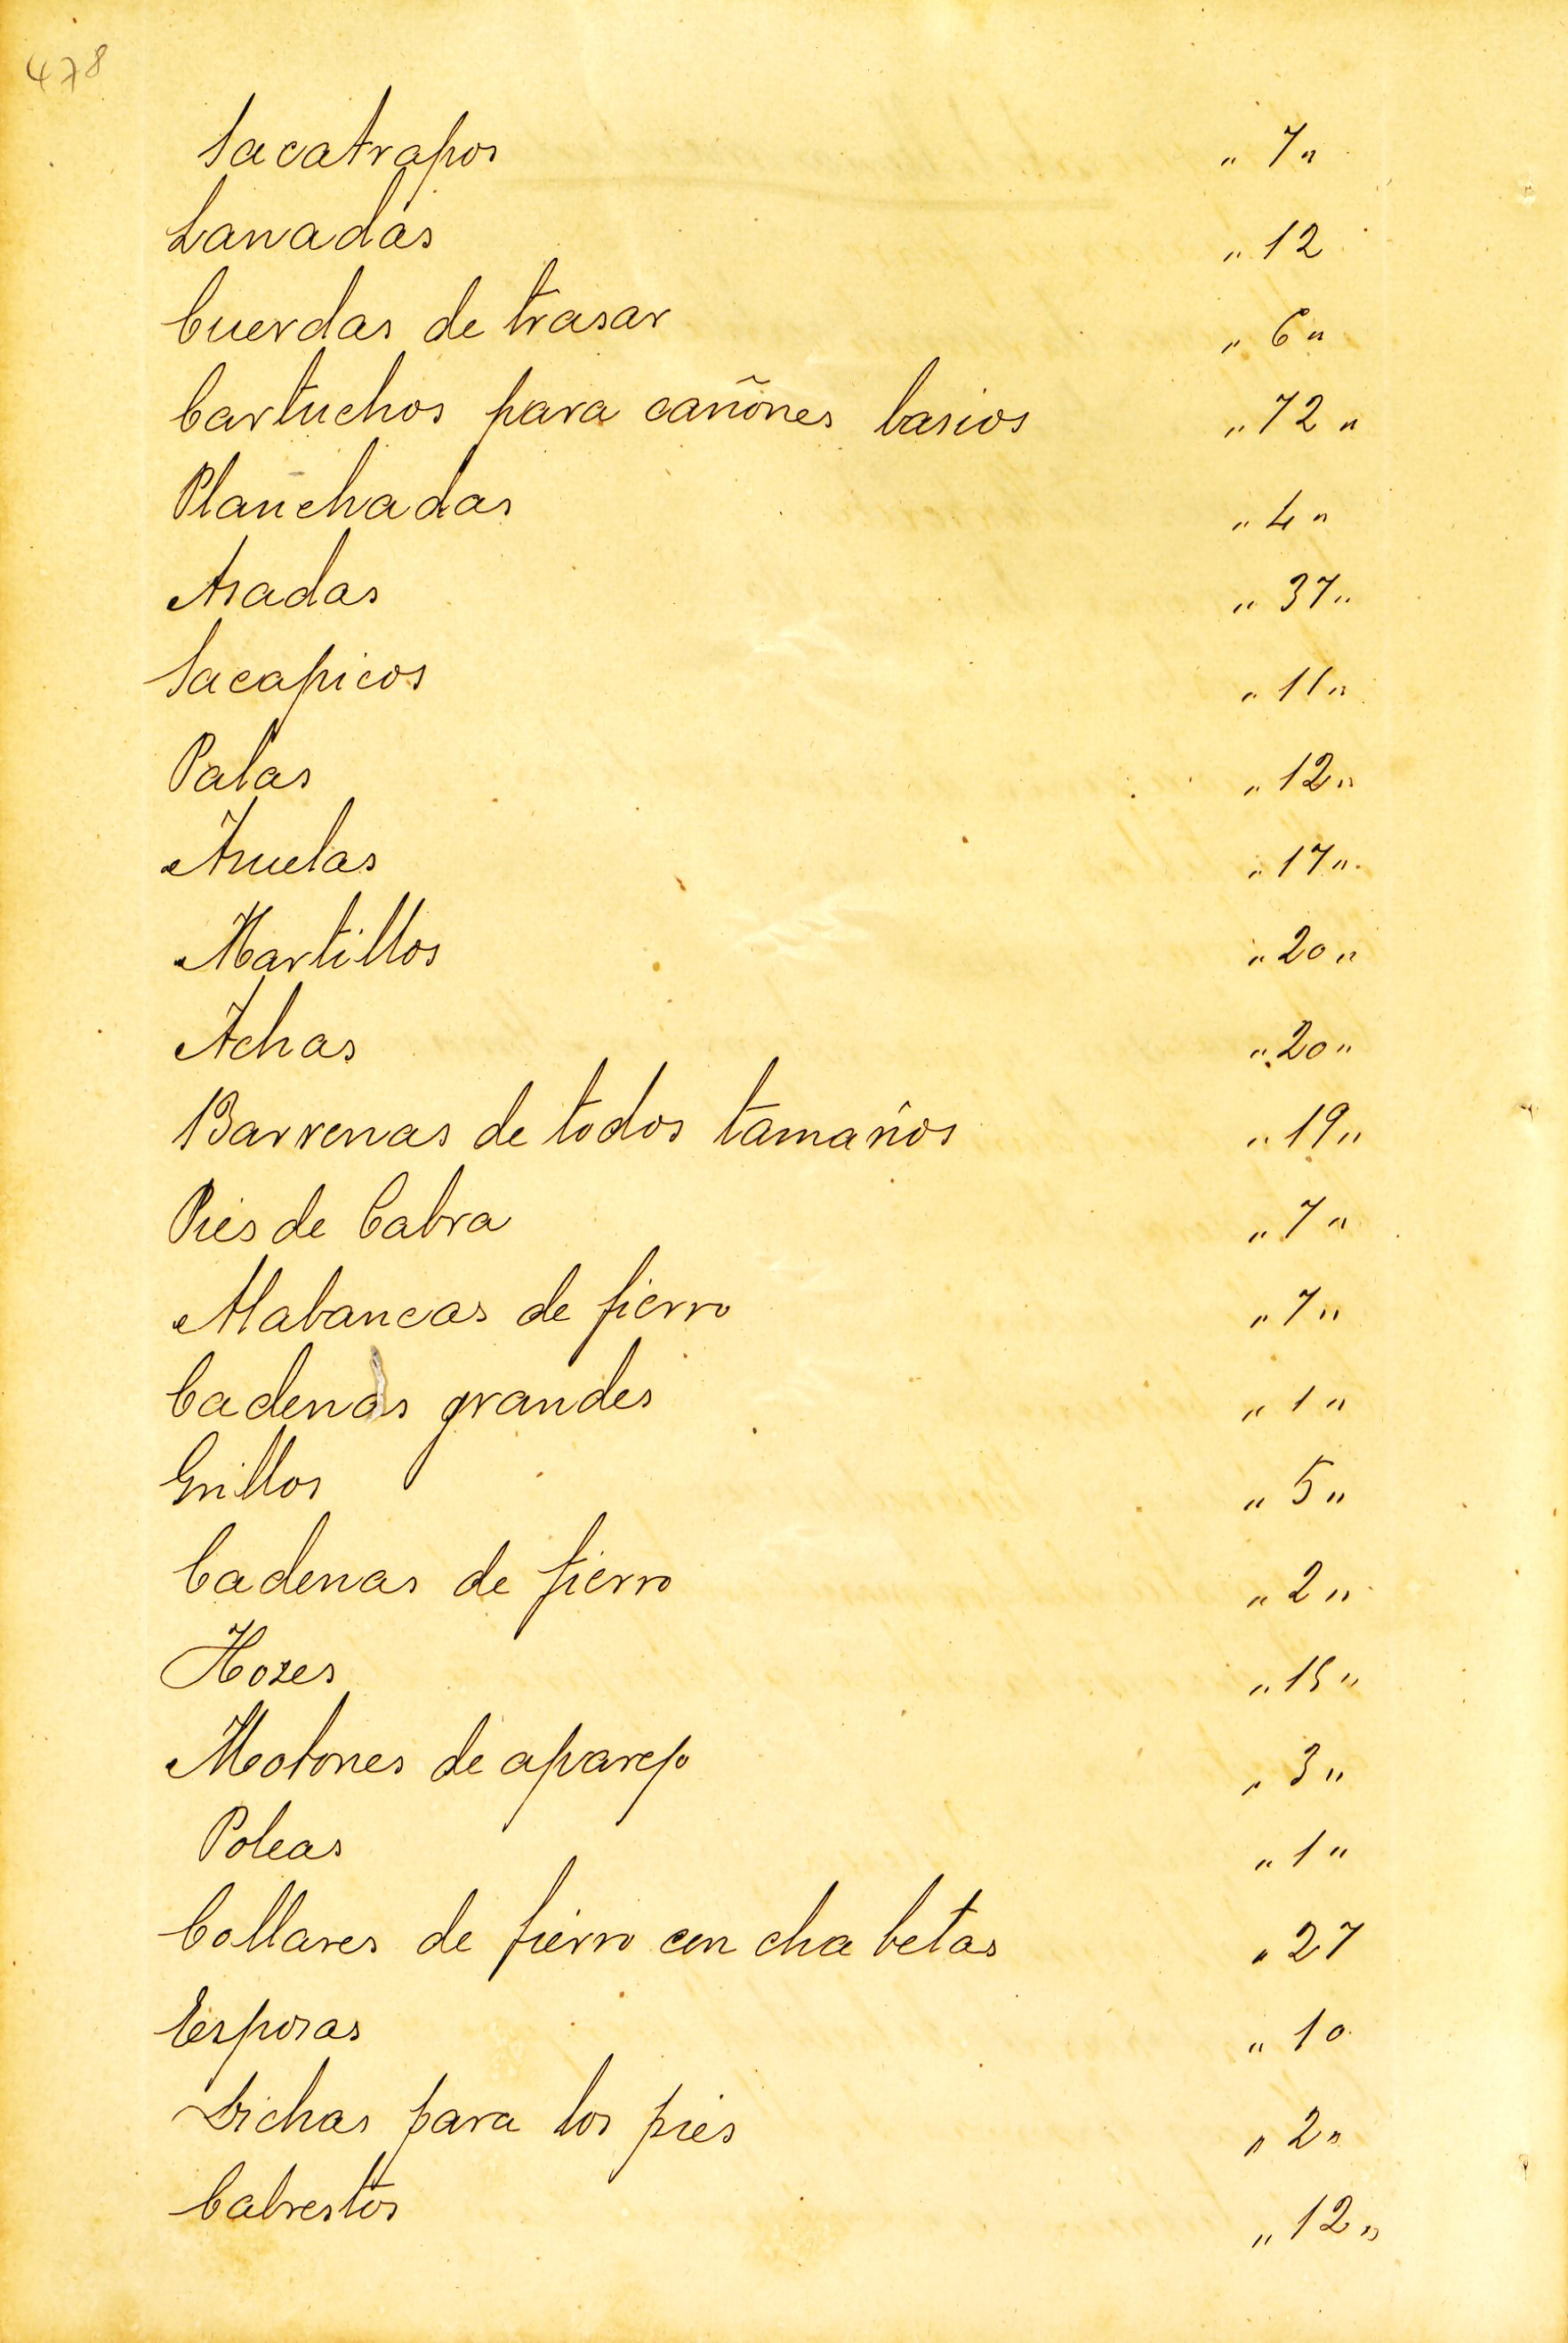 478
Sacatrapos " 7 "
Lanadas " 12
Cuerdas de trasar " 6 "
Cartuchos para cañones basios " 72 "
Planchadas " 4 "
Asadas " 37 "
Sacapicos " 11 "
Palas " 12 "
Asuelas " 17 "
Martillos " 20 "
Achas " 20 "
Barrenas de todos tamaños " 19 "
Pies de Cabra " 7 "
Alabancas de fierro " 7 "
Cadenas grandes " 1 "
Grillos " 5 "
Cadenas de fierro " 2 "
Hozes " 15 "
Motones de aparejo " 3 "
Poleas " 1 "
Collares de fierro con chabetas " 27
Esposas " 10
Dichas para los pies " 2 "
Cabrestos " 12 "